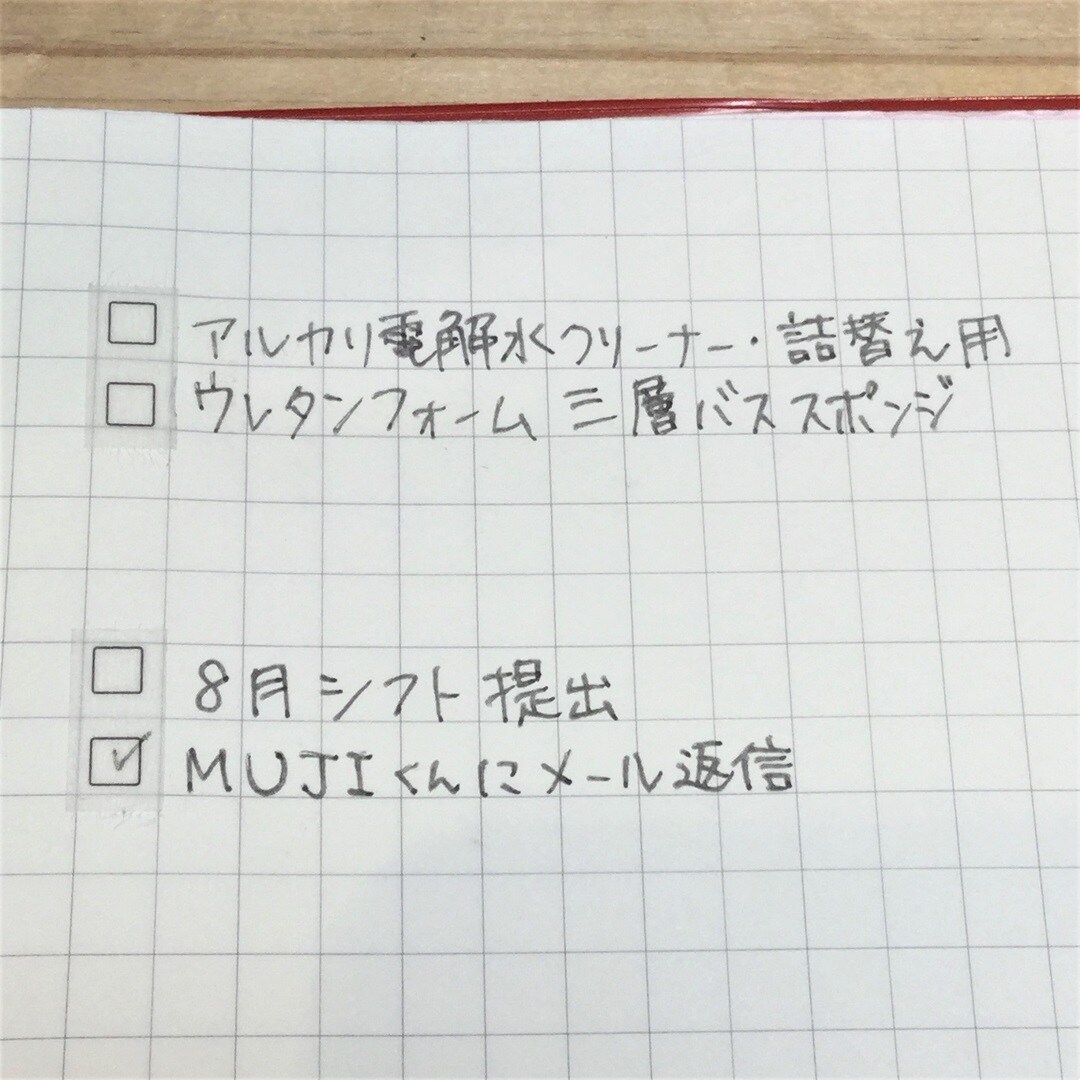 □ アルカリ電解水クリーナー・詰替え用
□ ウレタンフォーム 三層バススポンジ
□ 8月シフト提出
☑ MUJIくんにメール返信